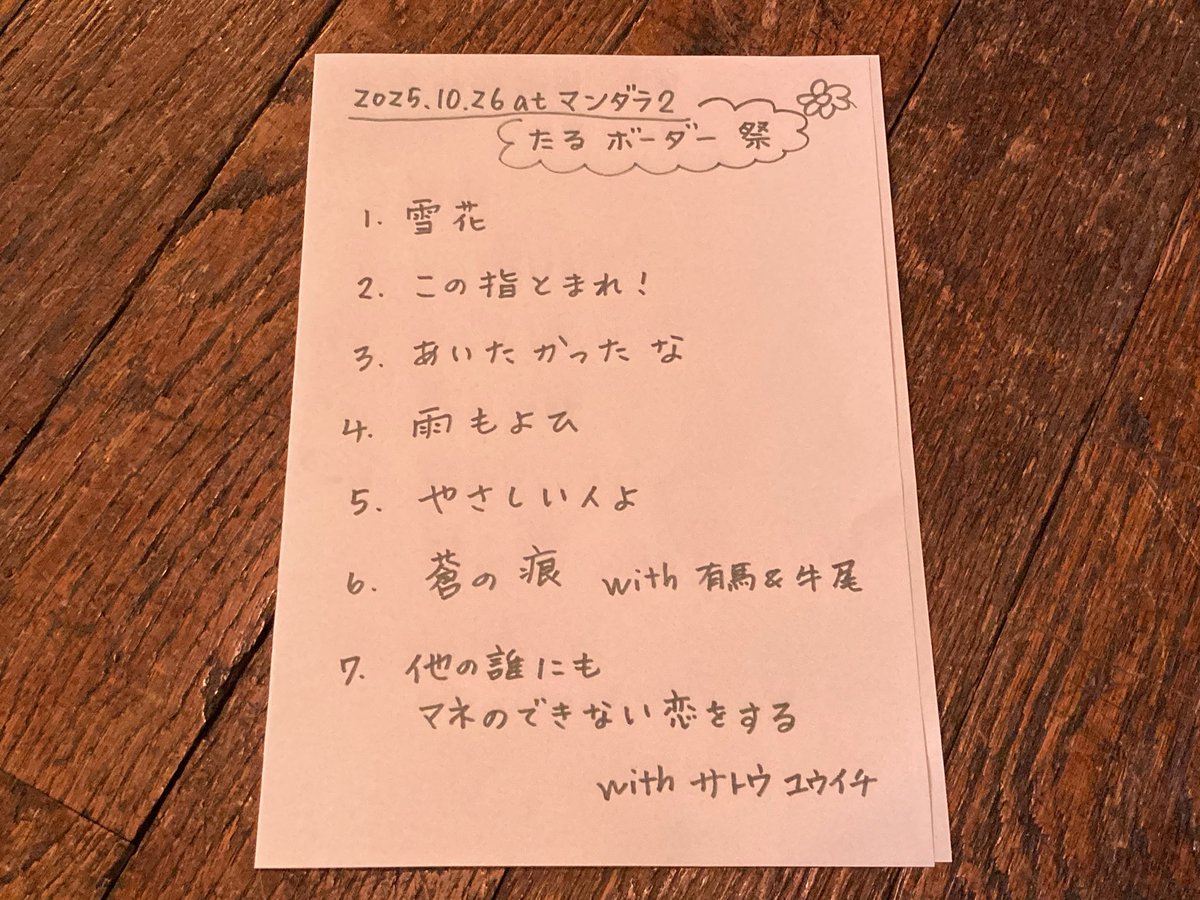 2025.10.26 at マンダラ2
たる ボーダー 祭
1. 雪花
2. この指とまれ!
3. あいたかったな
4. 雨もよひ
5. やさしい人よ
6. 蒼の痕 with 有馬&牛尾
7. 他の誰にも
マネのできない恋をする
with サトウユウイチ